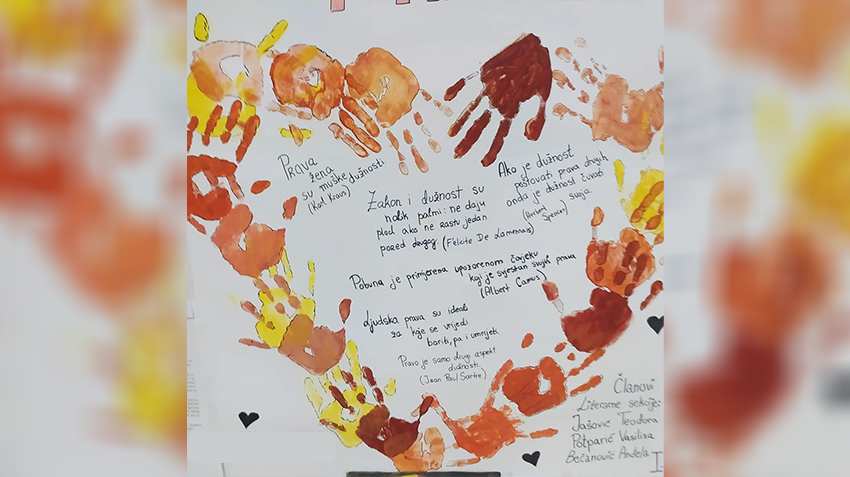 Prava
žena
su muške dužnosti
(Karl Kraus)
Zakon i dužnost su
nalik palmi: ne daju
plod ako ne rastu jedan
pored drugog. (Felicite De Lamennais)
Ako je dužnost
poštovati prava drugih
onda je dužnost čuvati
svoja.
(Herbert
Spencer)
Pobuna je primjerena upozorenom čovjeku
koji je svjestan svojih prava
(Albert Camus)
Ljudska prava su ideal
za koje se vrijedi
boriti, pa i umrijeti.
Pravo je samo drugi aspekt
dužnosti
(Jean Poul Sartre)
Članovi
Literarne sekcije:
Jašović Teodora
Potparić Vasilisa
Bećanović Anđela
I